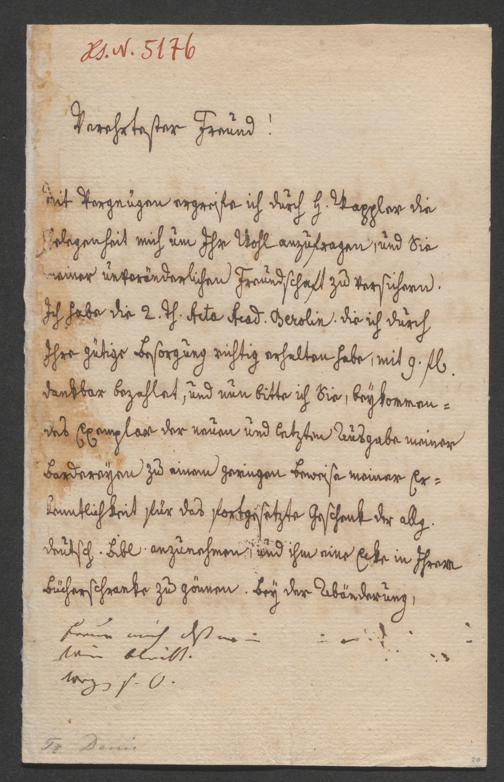 Hs. N. 5176
Verehrtester Freund!
Mit Vergnügen ergreife ich durch H. Wappler die
Gelegenheit mich um Ihr Wohl anzufragen, und Sie
meiner unveränderlichen Freundschaft zu versichern.
Ich habe die 2. Th. Acta Acad. Berolin. die ich durch
Ihre gütige Besorgung richtig erhalten habe, mit 9. fl.
dankbar bezahlet, und nun bitte ich Sie, beykommen=
des Exemplar der neuen und letzten Ausgabe meiner
Bardereyen zu einem geringen Beweise meiner Er=
kenntlichkeit für das fortgesetzte Geschenk der allg.
deutsch. Bibl. anzunehmen, und ihm eine Ecke in Ihrem
Bücherschranke zu gönnen. Bey der Abänderung,
mich
Denis